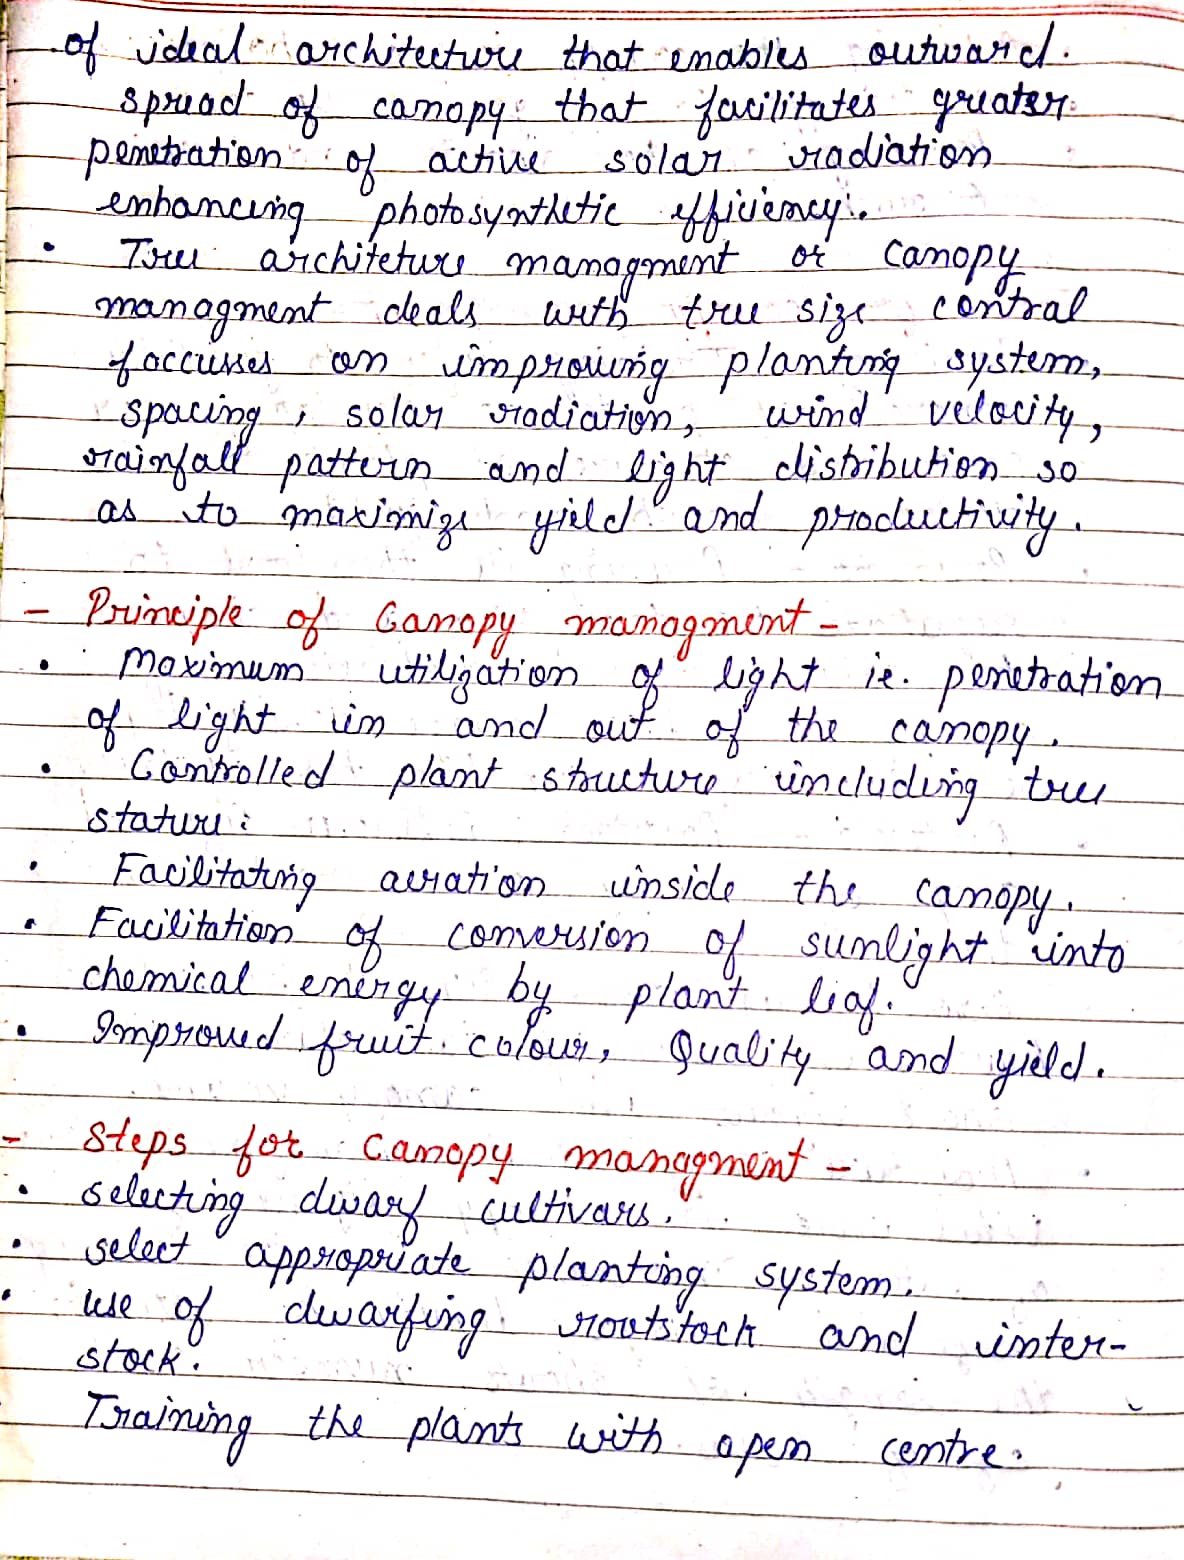 of ideal architecture that enables outward.
spread of canopy that facilitates greater
penetration of active solar radiation
enhancing photosynthetic efficiency.
• Tree architeture managment or canopy
managment deals with tree size control
foccusses on improving planting system,
spacing, solar radiation, wind velocity,
rainfall pattern and light distribution so
as to maximize yield and productivity.
- Principle of Canopy managment -
• Maximum utilization of light ie. penetration
of light in and out of the canopy.
• Controlled plant structure including tree
stature.
• Facilitating aeration inside the canopy.
• Facilitation of conversion of sunlight into
chemical energy by plant leaf.
• Improved fruit colour, Quality and yield.
- Steps for Canopy managment -
• selecting dwarf cultivars.
• select appropriate planting system.
• use of dwarfing rootstock and inter-
stock.
Training the plants with open centre.